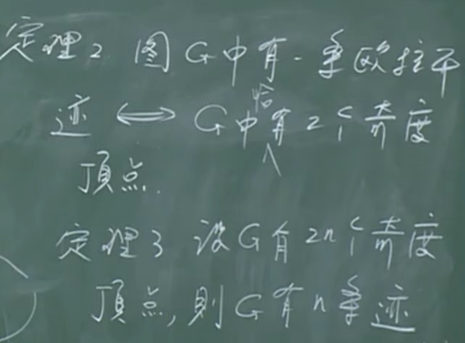 定理2 图G中有一条欧拉开
迹 ⟺ G中恰有2个奇度
頂点.
定理3 设G有2n个奇度
頂点,則G有n条迹